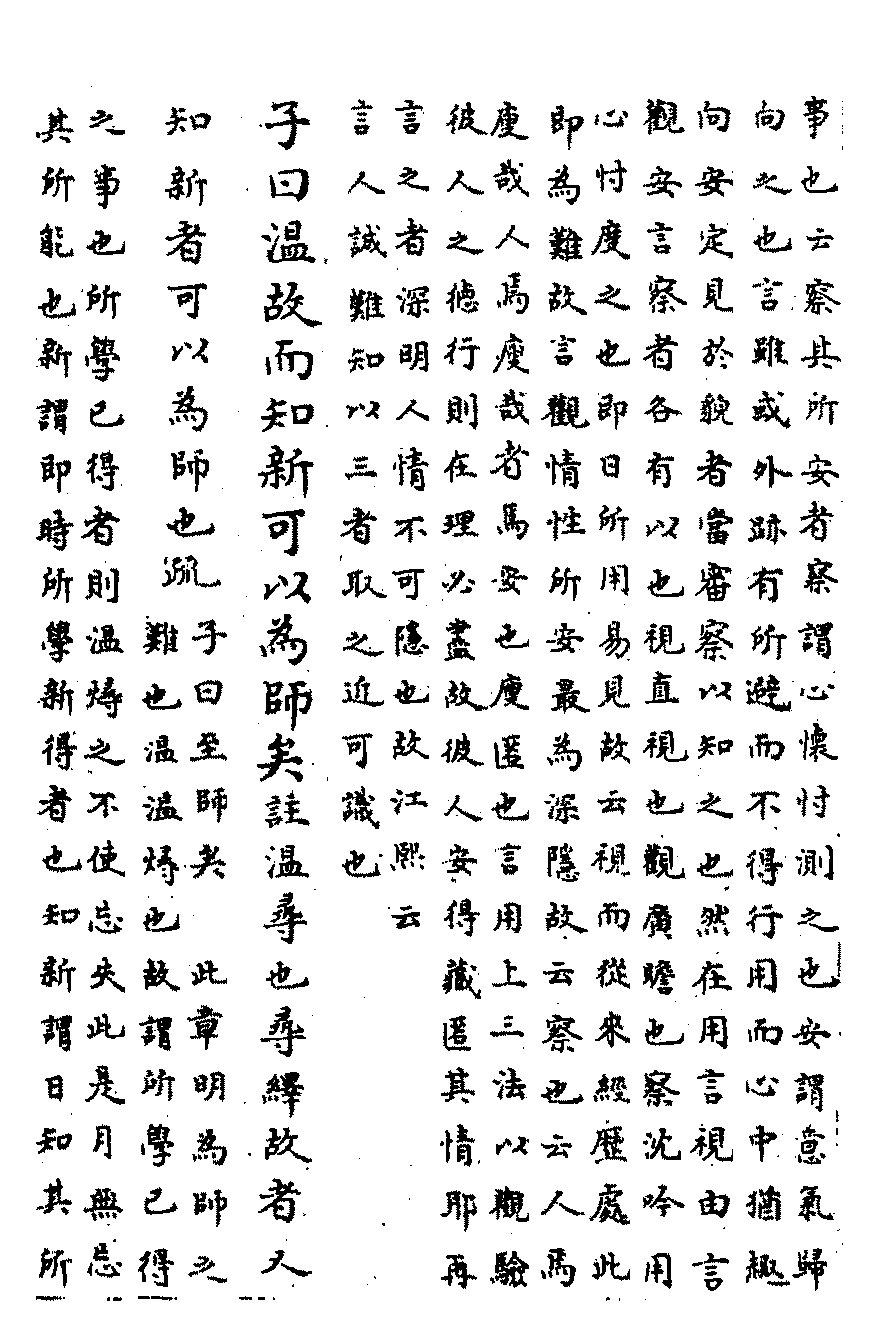 事也云察其所安者察謂心懷忖測之也安謂意氣歸
向之也言雖或外跡有所避而不得行用而心中猶趣
向安定見於貌者當審察以知之也然在用言視由言
觀安言察者各有以也視直視也觀廣瞻也察沈吟用
心忖度之也即日所用易見故云視而從來經歷處此
即為難故言觀情性所安最為深隱故云察也云人焉
廋哉人焉廋哉者焉安也廋匿也言用上三法以觀驗
彼人之德行則在理必盡故彼人安得藏匿其情耶再
言之者深明人情不可隱也故江熙云
言人誠難知以三者取之近可識也
子曰温故而知新可以為師矣註温尋也尋繹故者又
知新者可以為師也疏
子曰至師矣 此章明為師之
難也温温燖也故謂所學已得
之事也所學已得者則温燖之不使忘失此是月無忘
其所能也新謂即時所學新得者也知新謂日知其所